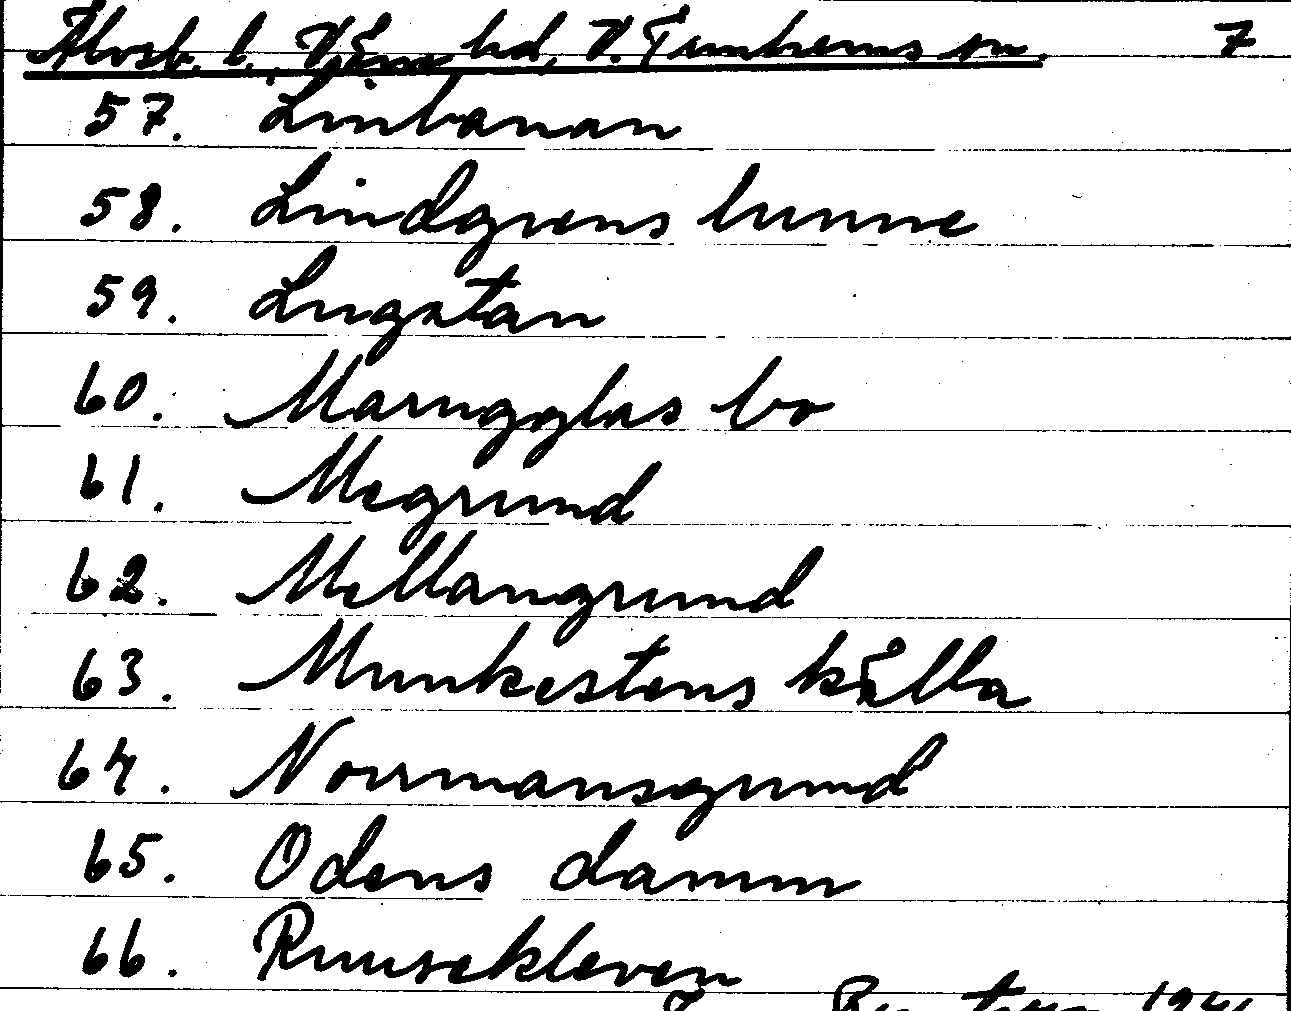 Älvsb. l., Väne hd, V. Tunhems sn. 7
57. Linbanan
58. Lindgrens brunne
59. Lugatan
60. Marngglas bo
61. Megrund
62. Mellangrund
63. Munkestens källa
64. Normansgrund
65. Odens damm
66. Runsekleven
1941